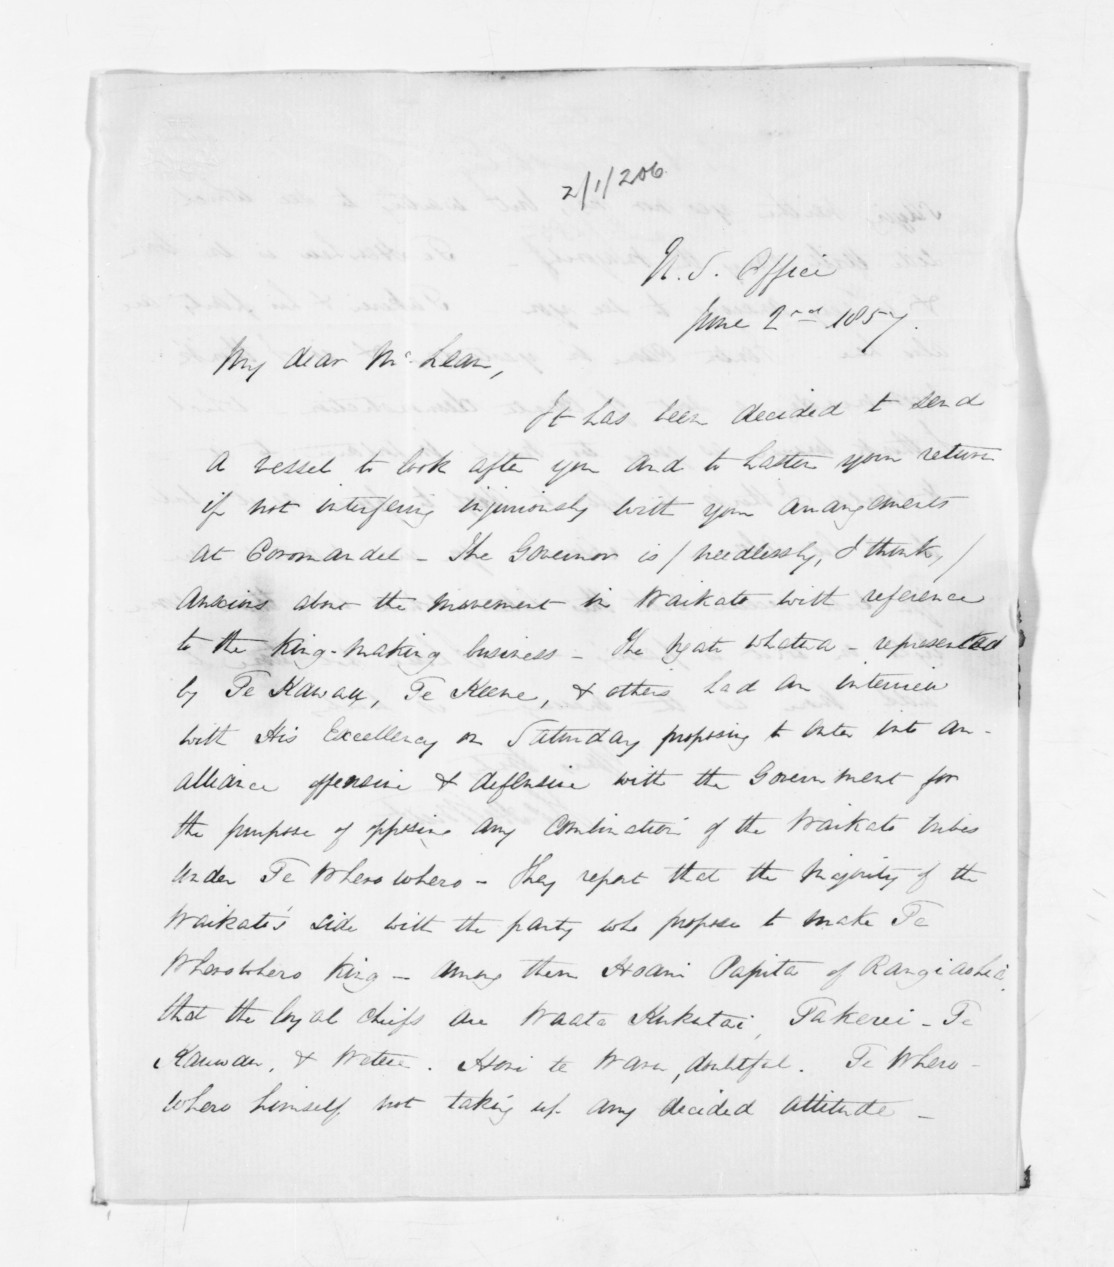 2/1/206
N. S. Office
June 2nd 1857.
My dear McLean,
It has been decided to send
a vessel to look after you and to hasten your return
if not interfering injuriously with your arrangements
at Coromandel - The Governor is / needlessly, I think, /
anxious about the movement in Waikato with reference
to the King-making business - The Ngati Whatua - represented
by Te Kawau, Te Keene, & others had an interview
with His Excellency on Saturday proposing to enter into an
alliance offensive & defensive with the Government for
the purpose of opposing any combination of the Waikato tribes
under Te Wherowhero - They report that the Majority of the
Waikato's side with the party who propose to make Te
Wherowhero King - among them Hoani Papita of Rangiaohia,
that the loyal chiefs are Waata Kukutai, Takerei - Te
Rauwau, & Wetere. Hori te Waru, doubtful. Te Whero-
whero himself not taking up any decided attitude -